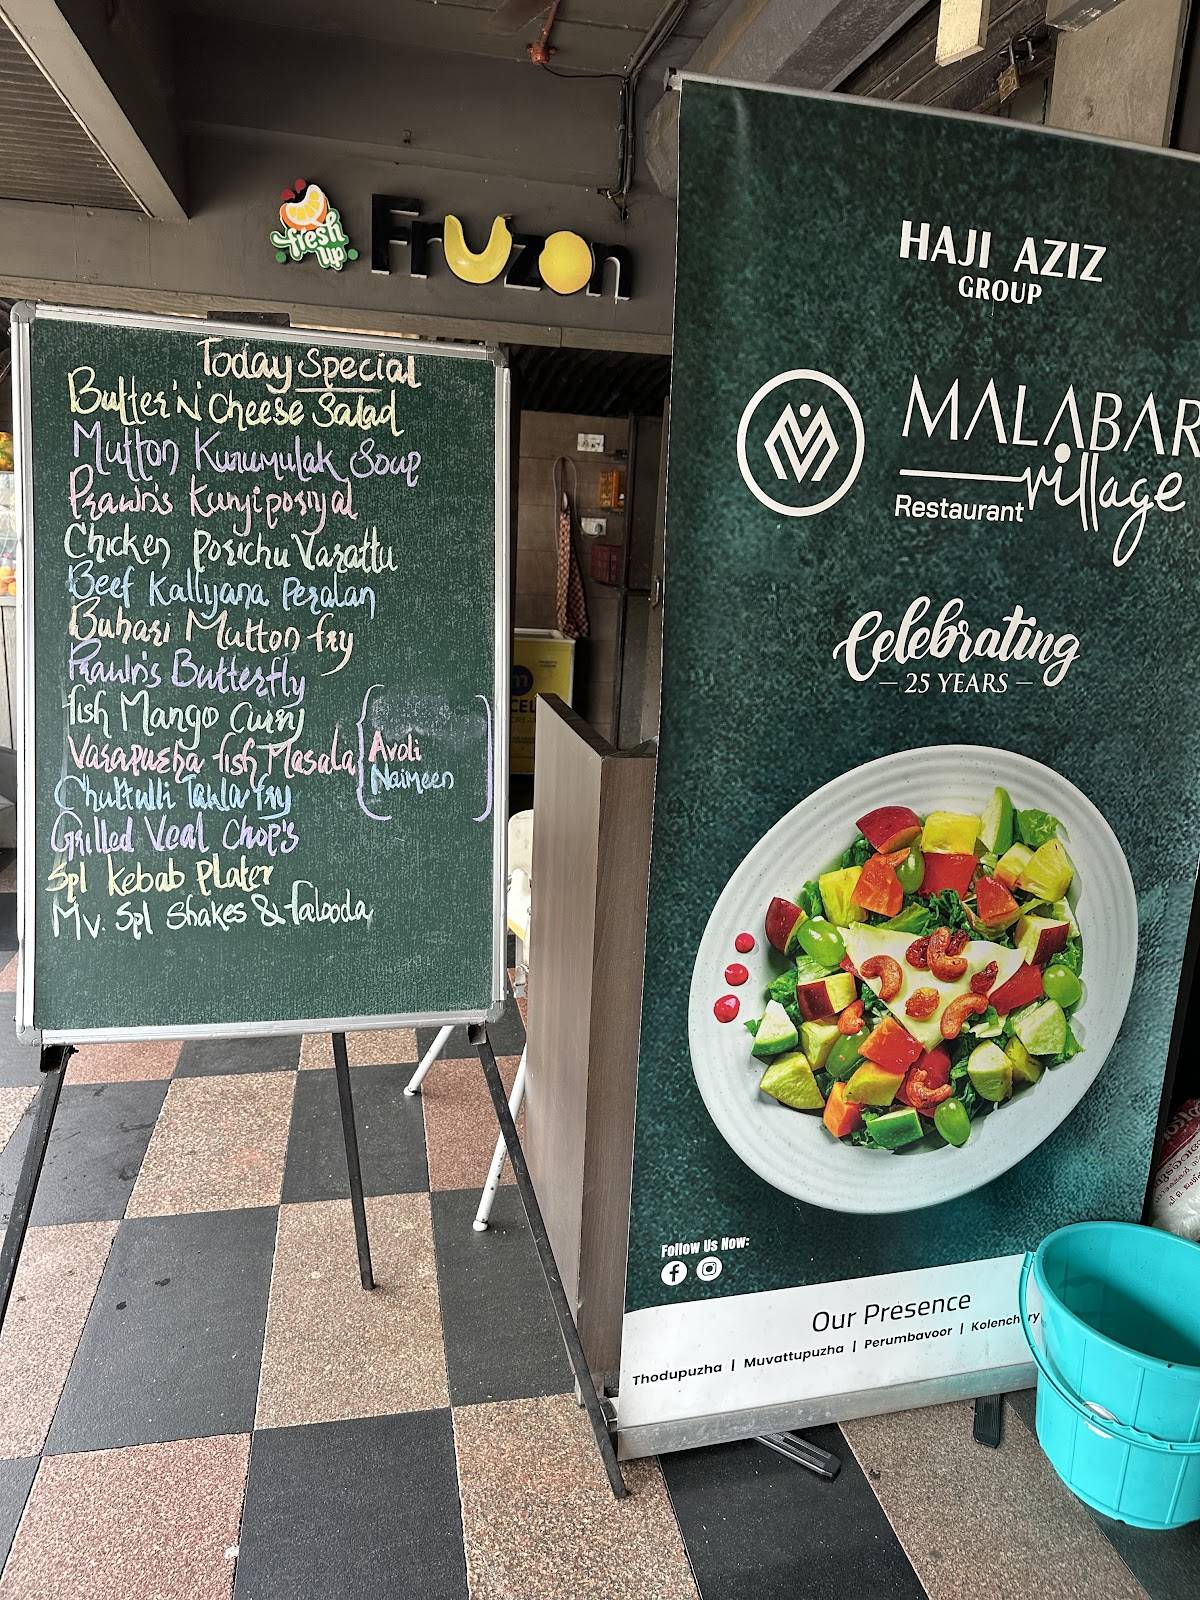 fresh up
Fruzon
Today Special
Butter 'N' Cheese Salad
Mutton Kurumulak Soup
Prawn's Kunjiporiyal
Chicken Porichu Varattu
Beef Kallyana Peralan
Buhari Mutton fry
Prawn's Butterfly
fish Mango Curry
Varapuzha fish Masala
Avoli
Naimeen
Chuttulli Tawla fry
Grilled Veal Chop's
Spl Kebab Plater
Mv. Spl Shakes & falooda
HAJI AZIZ
GROUP
MALABAR
village
Restaurant
Celebrating
– 25 YEARS –
Follow Us Now:
Our Presence
Thodupuzha | Muvattupuzha | Perumbavoor | Kolenchery